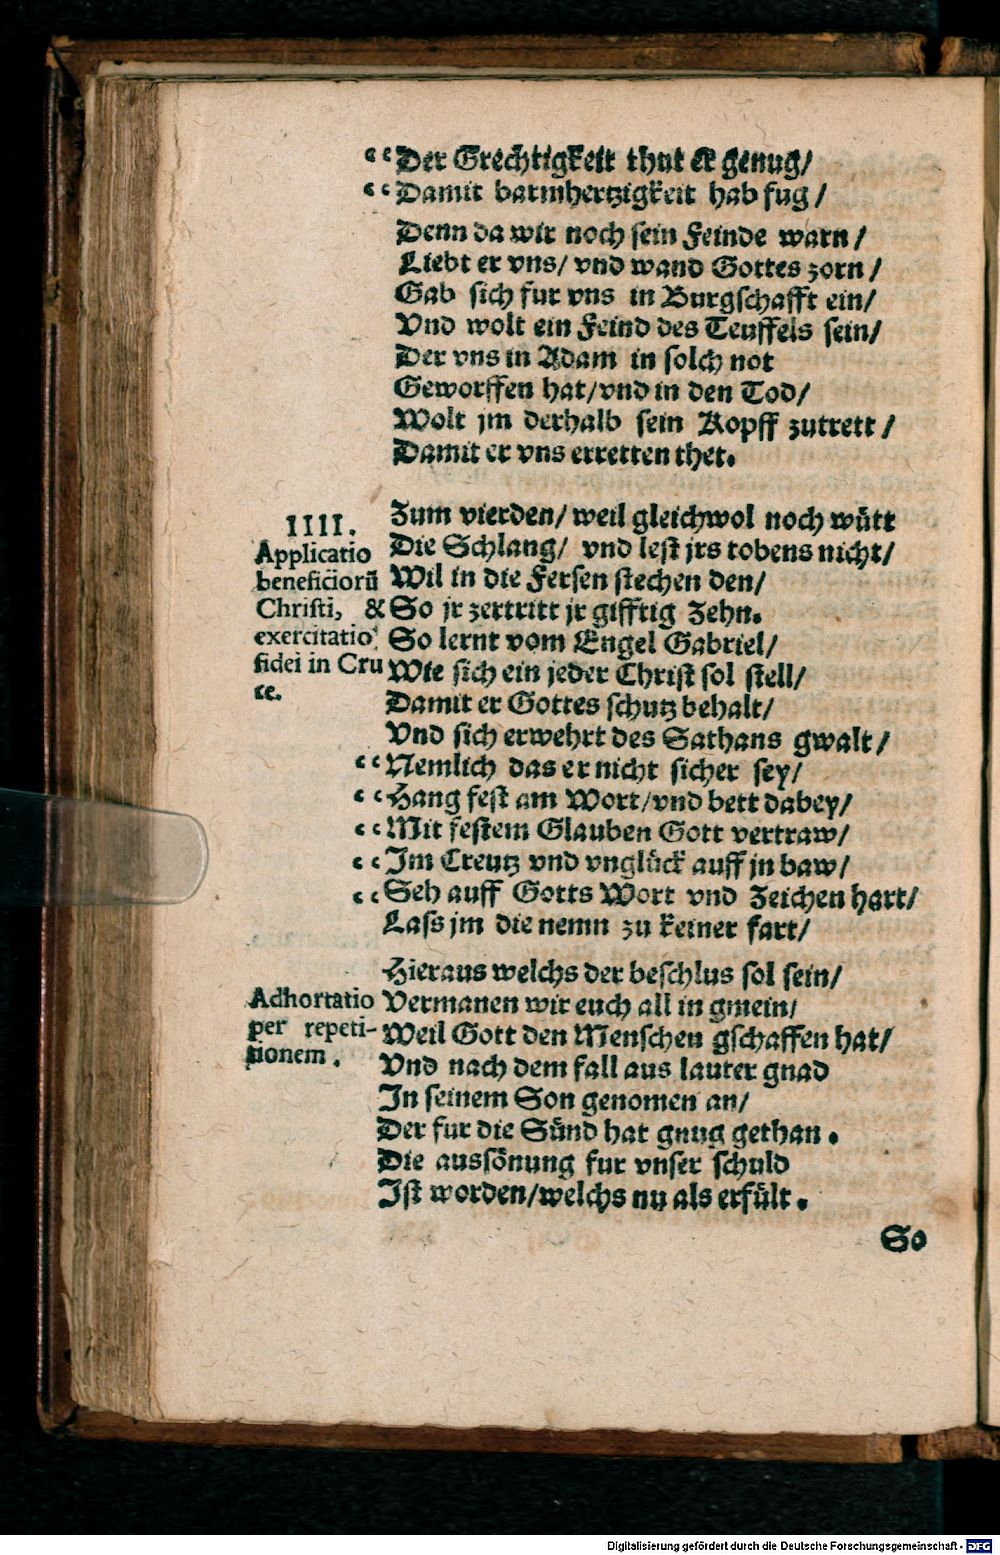 “Der Grechtigkeit thut er genug/
“Damit barmhertzigkeit hab fug/
Denn da wir noch sein Feinde warn/
Liebt er vns/ vnd wand Gottes zorn/
Gab sich fur vns in Burgschafft ein/
Vnd wolt ein Feind des Teuffels sein/
Der vns in Adam in solch not
Geworffen hat/vnd in den Tod/
Wolt jm derhalb sein Kopff zutrett/
Damit er vns erretten thet.
IIII.
Applicatio
beneficiorũ
Christi, &
exercitatio
fidei in Cru
ce.
Zum vierden/ weil gleichwol noch wütt
Die Schlang/ vnd lest jrs tobens nicht/
Wil in die Fersen stechen den/
So jr zertritt jr gifftig Zehn.
So lernt vom Engel Gabriel/
Wie sich ein jeder Christ sol stell/
Damit er Gottes schutz behalt/
Vnd sich erwehrt des Sathans gwalt/
“Nemlich das er nicht sicher sey/
“Hang fest am Wort/vnd bett dabey/
“Mit festem Glauben Gott vertraw/
“Im Creutz vnd vnglück auff jn baw/
“Seh auff Gotts Wort vnd Zeichen hart/
Lass jm die nemn zu keiner fart/
Adhortatio
per repeti-
tionem.
Hieraus welchs der beschlus sol sein/
Vermanen wir euch all in gmein/
Weil Gott den Menschen gschaffen hat/
Vnd nach dem fall aus lauter gnad
In seinem Son genomen an/
Der fur die Sünd hat gnug gethan.
Die aussönung fur vnser schuld
Ist worden/welchs nu als erfült.
So
Digitalisierung gefördert durch die Deutsche Forschungsgemeinschaft - DFG